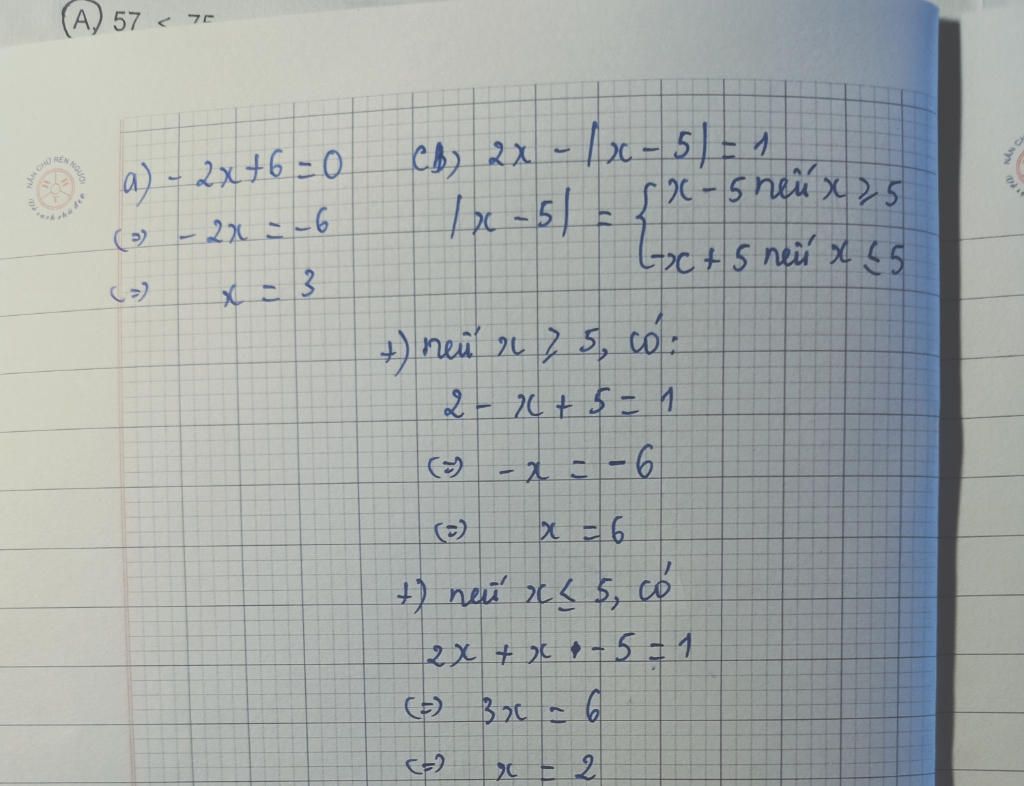 A, 57 <
NẮN CHỮ RÈN NGƯỜI
a) - 2x + 6 = 0
(=) - 2x = -6
(=) x = 3
2x - |x - 5| = 1
|x - 5| = { x - 5 nếu x ≥ 5
-x + 5 nếu x ≤ 5
+) nếu x ≥ 5, có:
2 - x + 5 = 1
(=) -x = -6
(=) x = 6
+) nếu x ≤ 5, có
2x + x - 5 = 1
(=) 3x = 6
(=) x = 2